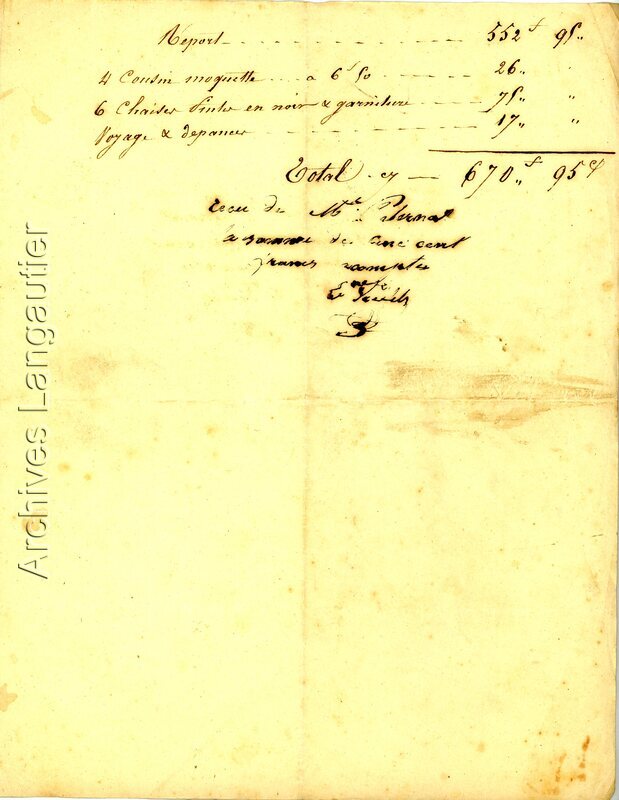 Report 552 f 95 "
4 Cousin moquette a 6 f 50 26 " "
6 Chaises Peintes en noir & garniture 75 " "
Voyage & depances 17 " "
Total 670 " f 95 c
recu de Mr
la somme de cinc cent
francs
Archives Langautier